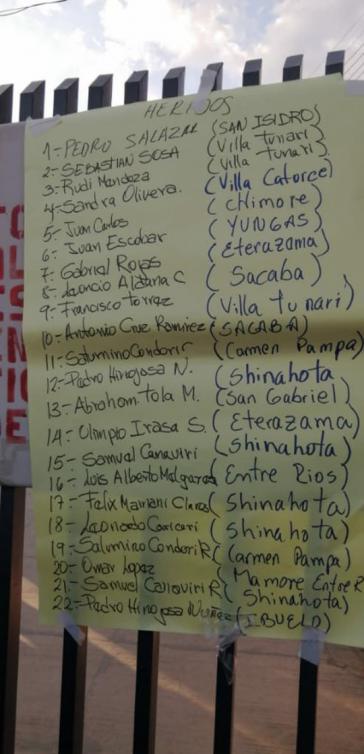 HERIDOS
1-- PEDRO SALAZAR (SAN ISIDRO)
2-- SEBASTIAN SOSA (Villa tunari)
3-- Rudi Mendoza (Villa tunari)
4- Sandra Olivera. (Villa Catorce)
5- Juan Carlos (CHimore)
6- Juan Escobar (YUNGAS)
7- Gabriel Rojas (Eterazama)
8- Leoncio Aldana C (Sacaba)
9- Francisco Torrez (Villa tunari)
10- Antonio Cruz Ramirez (SACABA)
11- Saturnino Condori (Carmen Pampa)
12- Pedro Hinojosa N. (Shinahota
13- Abraham Tola M. (San Gabriel)
14- Olimpio Irasa S. (Eterazama)
15- Samuel Canaviri (Shinahota)
16- Luis Alberto (Entre Rios)
17- Felix Mamani Claros (Shinahota)
18- Leonardo Caricari (Shinahota)
19- Saturnino Condori R (Carmen Pampa)
20- Omar Lopez (Mamore Entre R
21- Samuel Canaviri R (Shinahota)
22- Pedro Hinojosa Nuñez (IBUELO)